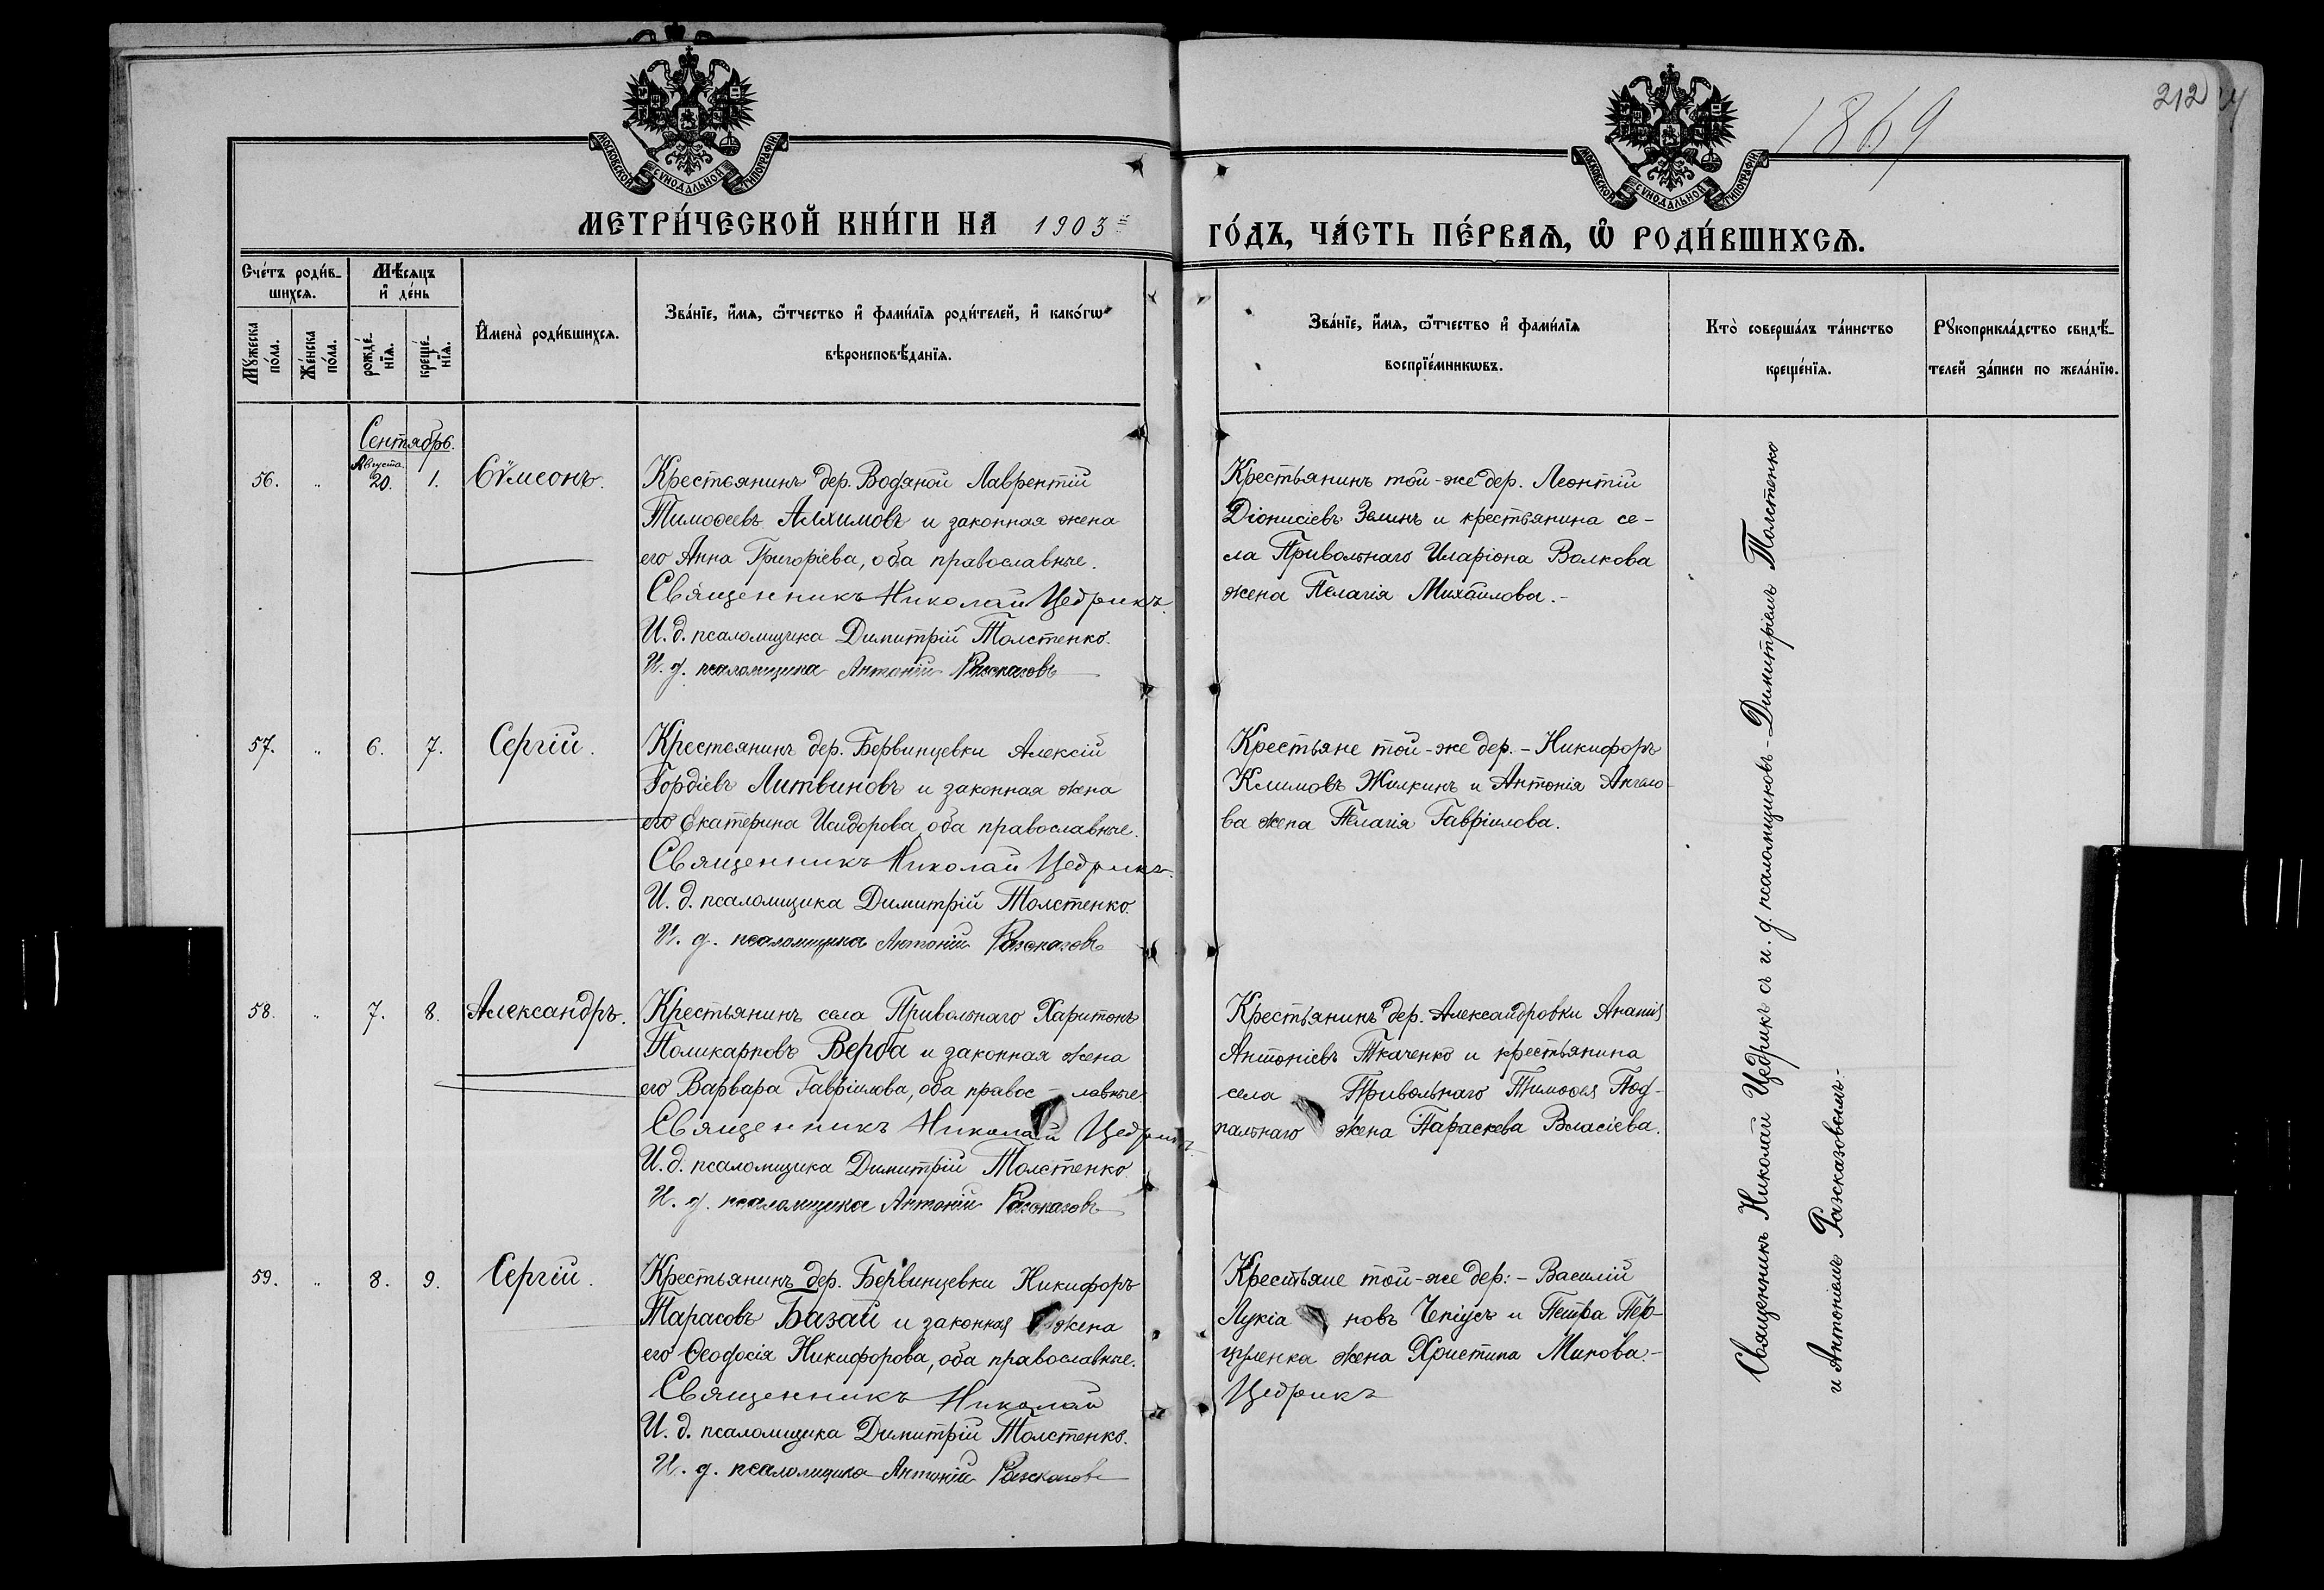 1869
212
МОСКОВСКОЙ СѴНОДАЛЬНОЙ ТИПОГРАФІИ.
МОСКОВСКОЙ СѴНОДАЛЬНОЙ ТИПОГРАФІИ.
МЕТРИ́ЧЕСКОЙ КНИ́ГИ НА 1903
ГО́ДЪ, ЧА́СТЬ ПЕ́РВАѦ, Ѽ РОДИ́ВШИХСѦ.
Сче́тъ роди́в-
шихсѧ.
Мѣ́сѧцъ
и҆ де́нь
Мꙋ́жеска
по́ла.
Же́нска
по́ла.
рожде́-
нїѧ.
креще́-
нїѧ.
И҆мена̀ роди́вшихсѧ.
Зва́нїе, и҆́мѧ, ѻ҆́тчество и҆ фами́лїѧ роди́телей, и҆ како́гѡ
вѣроисповѣ́данїѧ.
Зва́нїе, и҆́мѧ, ѻ҆́тчество и҆ фами́лїѧ
воспрїе́мникѡвъ.
Кто̀ соверша́лъ та́инство
креще́нїѧ.
Рꙋкоприкла́дство свидѣ́-
телей за́писи по жела́нїю.
Сентябрь.
Августа
56. „ 20. 1. Сѵмеонъ.
Крестьянинъ дер. Водяной Лаврентій
Тимоѳеевъ Алхимовъ и законная жена
его Анна Григоріева, оба православные.
Священникъ Николай Цедрикъ.
И. д. псаломщика Димитрій Толстенко.
И. д. псаломщика Антоній Разсказовъ
Крестьянинъ той-же дер. Леонтій
Діонисіевъ Зелинъ и крестьянина се-
ла Привольнаго Иларіона Волкова
жена Пелагія Михайлова.-
57. „ 6. 7. Сергій.
Крестьянинъ дер. Бервинцевки Алексій
Гордіевъ Литвиновъ и законная жена
его Екатерина Исидорова, оба православные.
Священникъ Николай Цедрикъ.
И. д. псаломщика Димитрій Толстенко.
И. д. псаломщика Антоній Разсказовъ
Крестьяне той-же дер. - Никифоръ
Климовъ Жилкинъ и Антонія Ангело-
ва жена Пелагія Гавріилова.
58. „ 7. 8. Александръ.
Крестьянинъ села Привольнаго Харитонъ
Поликарповъ Верба и законная жена
его Варвара Гавріилова, оба правос-лавные.
Священникъ Николай Цедрикъ.
И. д. псаломщика Димитрій Толстенко.
И. д. псаломщика Антоній Разсказовъ
Крестьянинъ дер. Александровки Ананій
Антоніевъ Ткаченко и крестьянина
села Привольнаго Тимоѳея Под-
пальнаго жена Параскева Власіева.
59. „ 8. 9. Сергій.
Крестьянинъ дер. Бервинцевки Никифоръ
Тарасовъ Базай и законная жена
его Ѳеодосія Никифорова, оба православные.
Священникъ Николай
И. д. псаломщика Димитрій Толстенко.
И. д. псаломщика Антоній Разсказовъ
Крестьяне той-же дер:- Василій
Лукіа новъ Чепіусъ и Петра Пер-
жена Христина Мирова.-
Цедрикъ
Священникъ Николай Цедрикъ съ и. д. псаломщиковъ - Димитріемъ Толстенко
и Антоніемъ Разсказовымъ.-